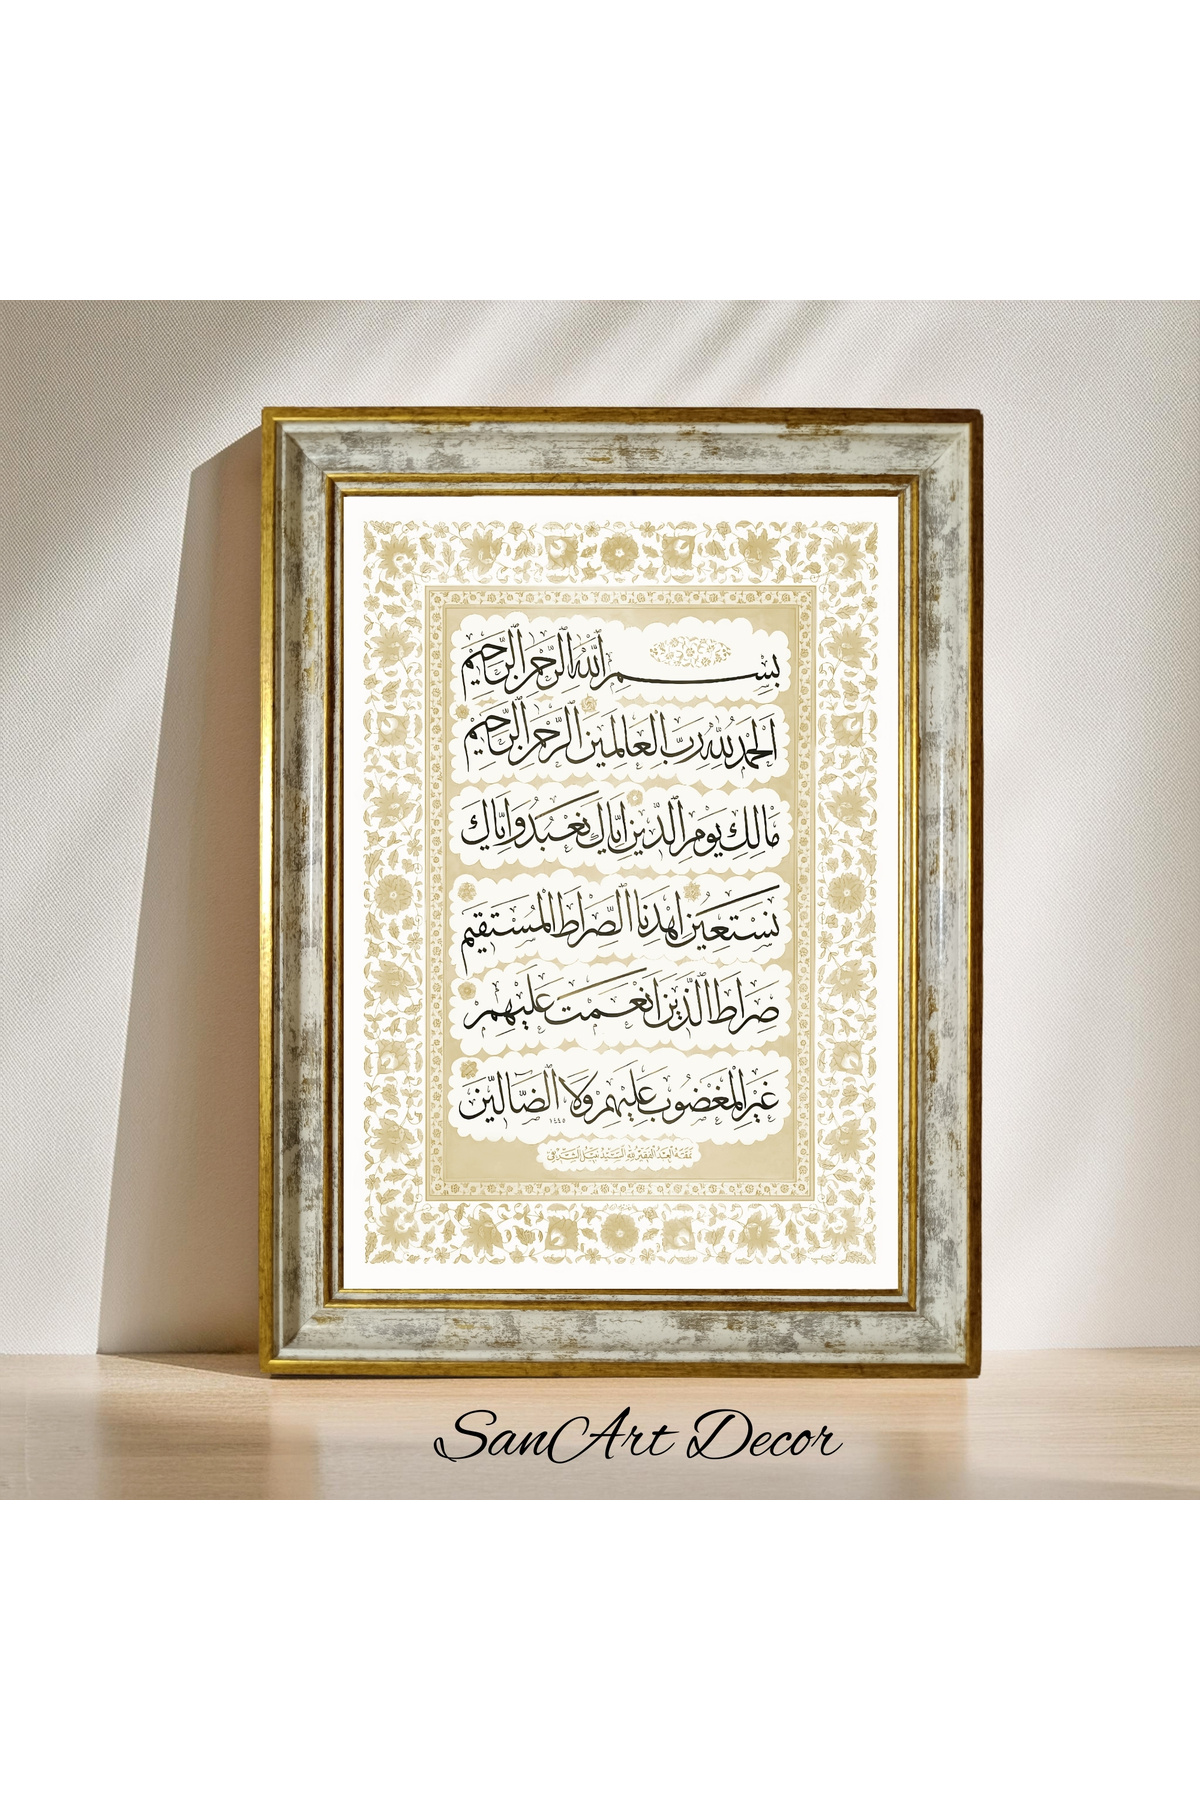 بِسْمِ اللَّهِ الرَّحْمٰنِ الرَّحِيمِ
اَلْحَمْدُ لِلَّهِ رَبِّ الْعَالَمِينَ الرَّحْمٰنِ الرَّحِيمِ
مَالِكِ يَوْمِ الدِّينِ اِيَّاكَ نَعْبُدُ وَاِيَّاكَ
نَسْتَعِينُ اِهْدِنَا الصِّرَاطَ الْمُسْتَقِيمَ
صِرَاطَ الَّذِينَ اَنْعَمْتَ عَلَيْهِمْ
غَيْرِ الْمَغْضُوبِ عَلَيْهِمْ وَلَا الضَّالِّينَ
١٤٤٥
SanArt Decor